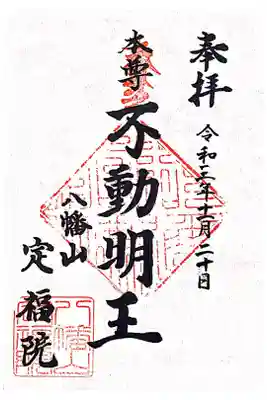 奉拝
令和三年十一月二十日
本尊
不動明王
八幡山
定福院